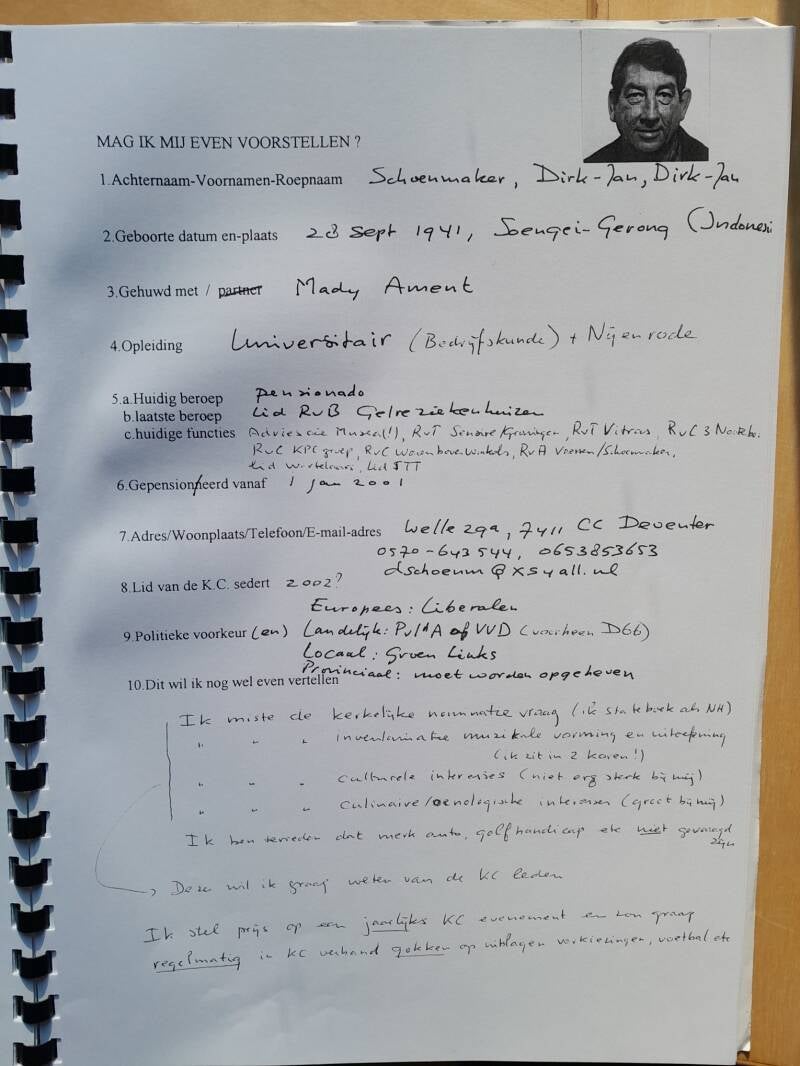 MAG IK MIJ EVEN VOORSTELLEN ?
1.Achternaam-Voornamen-Roepnaam Schoenmaker, Dirk-Jan, Dirk-Jan
2.Geboorte datum en-plaats 28 Sept 1941, Soengei-Gerong (Indonesi
3.Gehuwd met / partner Mady Ament
4.Opleiding Universitair (Bedrijfskunde) + Nijenrode
5.a.Huidig beroep pensionado
b.laatste beroep Lid RvB Gelre ziekenhuizen
c.huidige functies Advies cie Musea(!), RvT Sensire/Groningen, RvT Vitras, RvC 3
RvC KPC groep, RvC, RvA Voorsen/Schoenmaker,
Lid, Lid STT
6.Gepensionneerd vanaf 1 jan 2001
7.Adres/Woonplaats/Telefoon/E-mail-adres Welle 29a, 7411 CC Deventer
0570-643544, 0653853653
dschoenm@xs4all.nl
8.Lid van de K.C. sedert 2002?
Europees: Liberalen
9.Politieke voorkeur(en) Landelijk: PvdA of VVD (voorheen D66)
Locaal: Groen Links
Provinciaal: moet worden opgeheven
10.Dit wil ik nog wel even vertellen
Ik miste de kerkelijke nominatie vraag (ik sta te boek als NH)
" " " inventarisatie muzikale vorming en uitoefening
(ik zit in 2 koren!)
" " " culturele interesses (niet erg sterk bij mij)
" " " culinaire/oenologische interessen (groot bij mij)
Ik ben tevreden dat merk auto, golfhandicap etc niet gevraagd
zijn
Deze wil ik graag weten van de KC leden
Ik stel prijs op een jaarlijks KC evenement en zou graag
regelmatig in KC verband gokken op uitslagen verkiezingen, voetbal etc